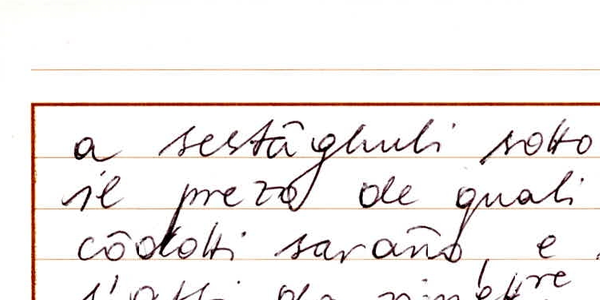 a sestāghuli sotto
il prezo de quali
cōdotti saraño, e